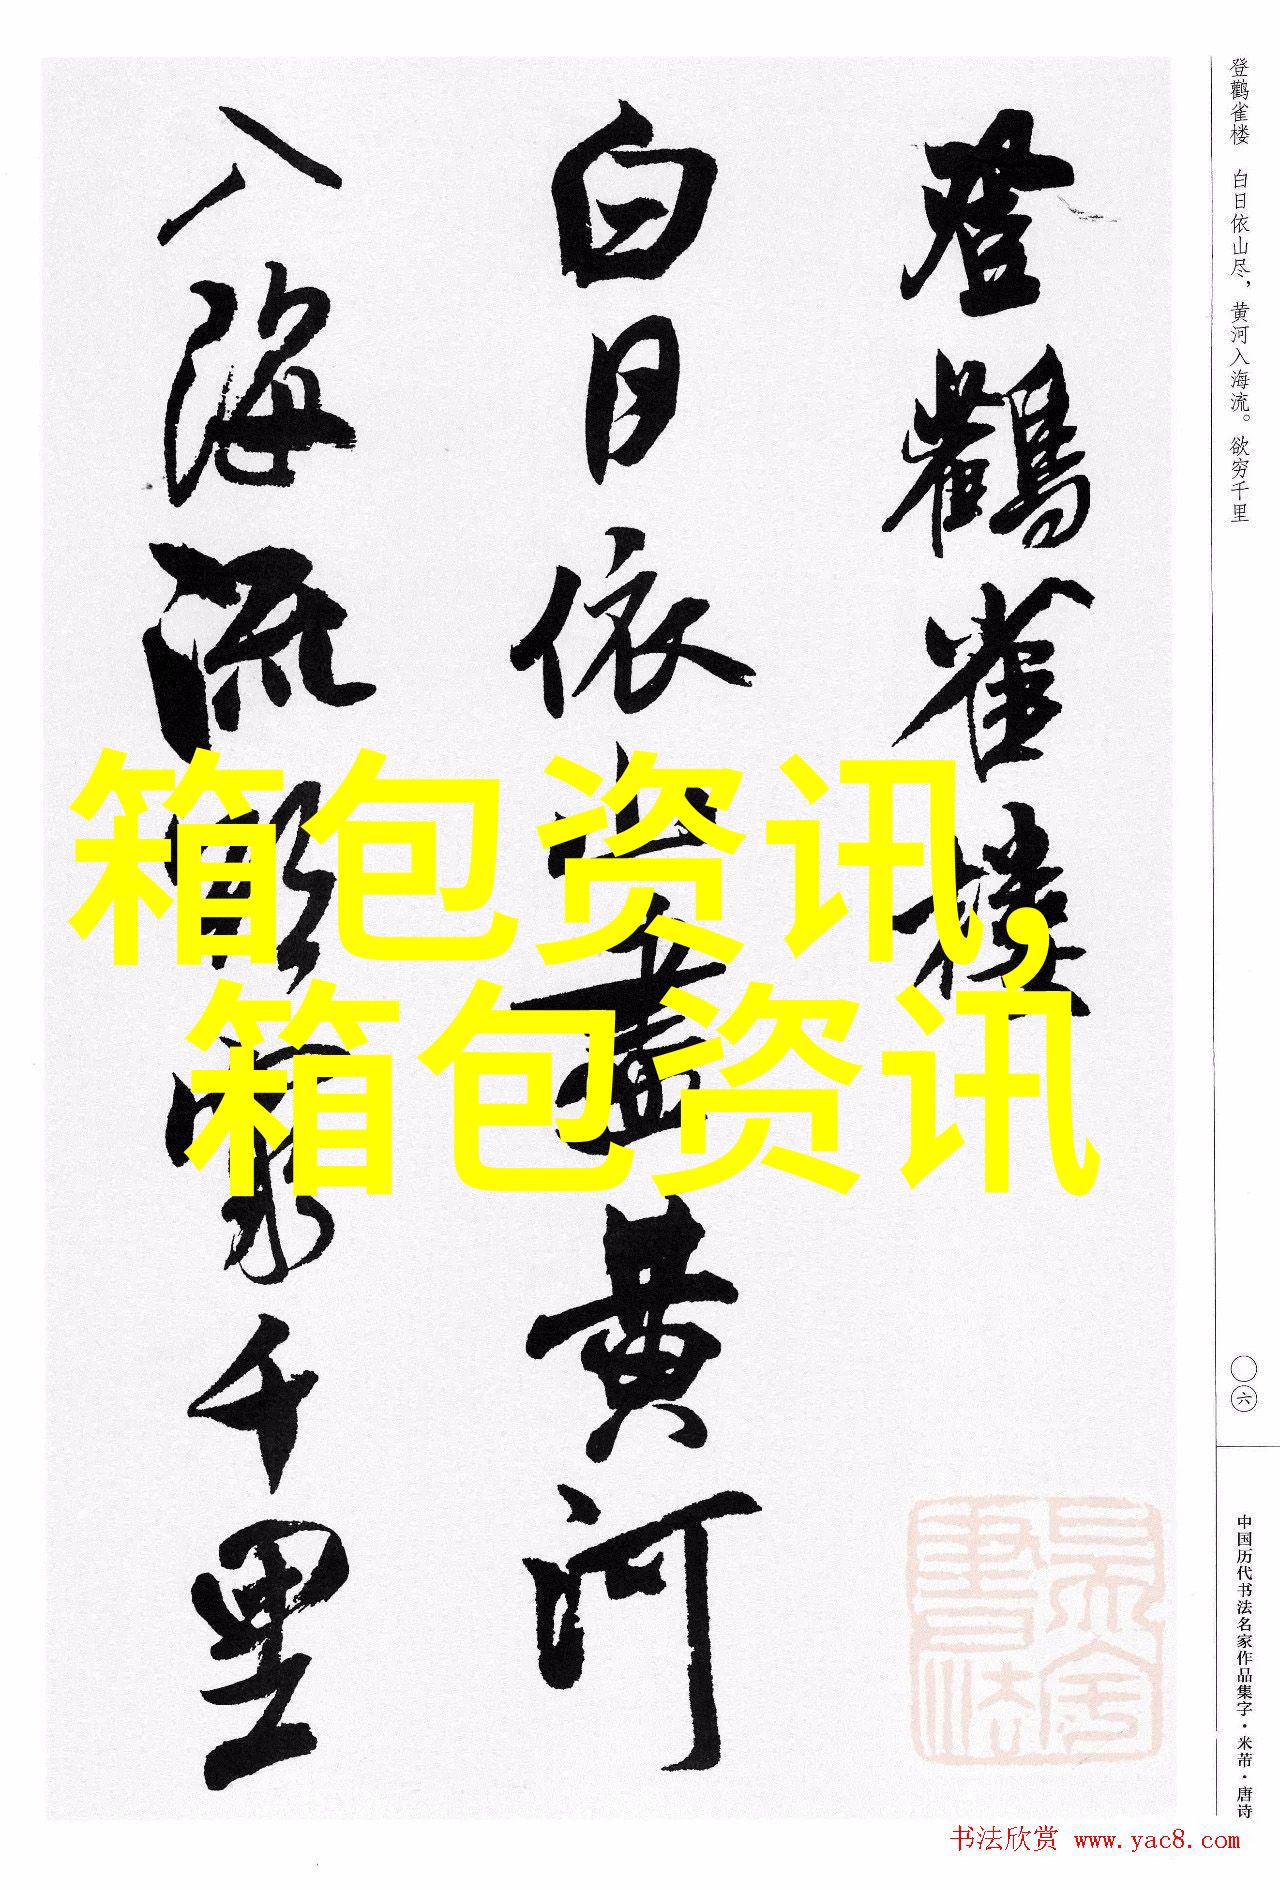 登鹳雀楼 白日依山尽，黄河入海流。欲穷千里
登鸛雀樓
白日依山盡黄河
入海流欲窮千里
箱包资讯,
箱包资讯
〇六
中国历代书法名家作品集字·米芾·唐诗
书法欣赏 www.yac8.com